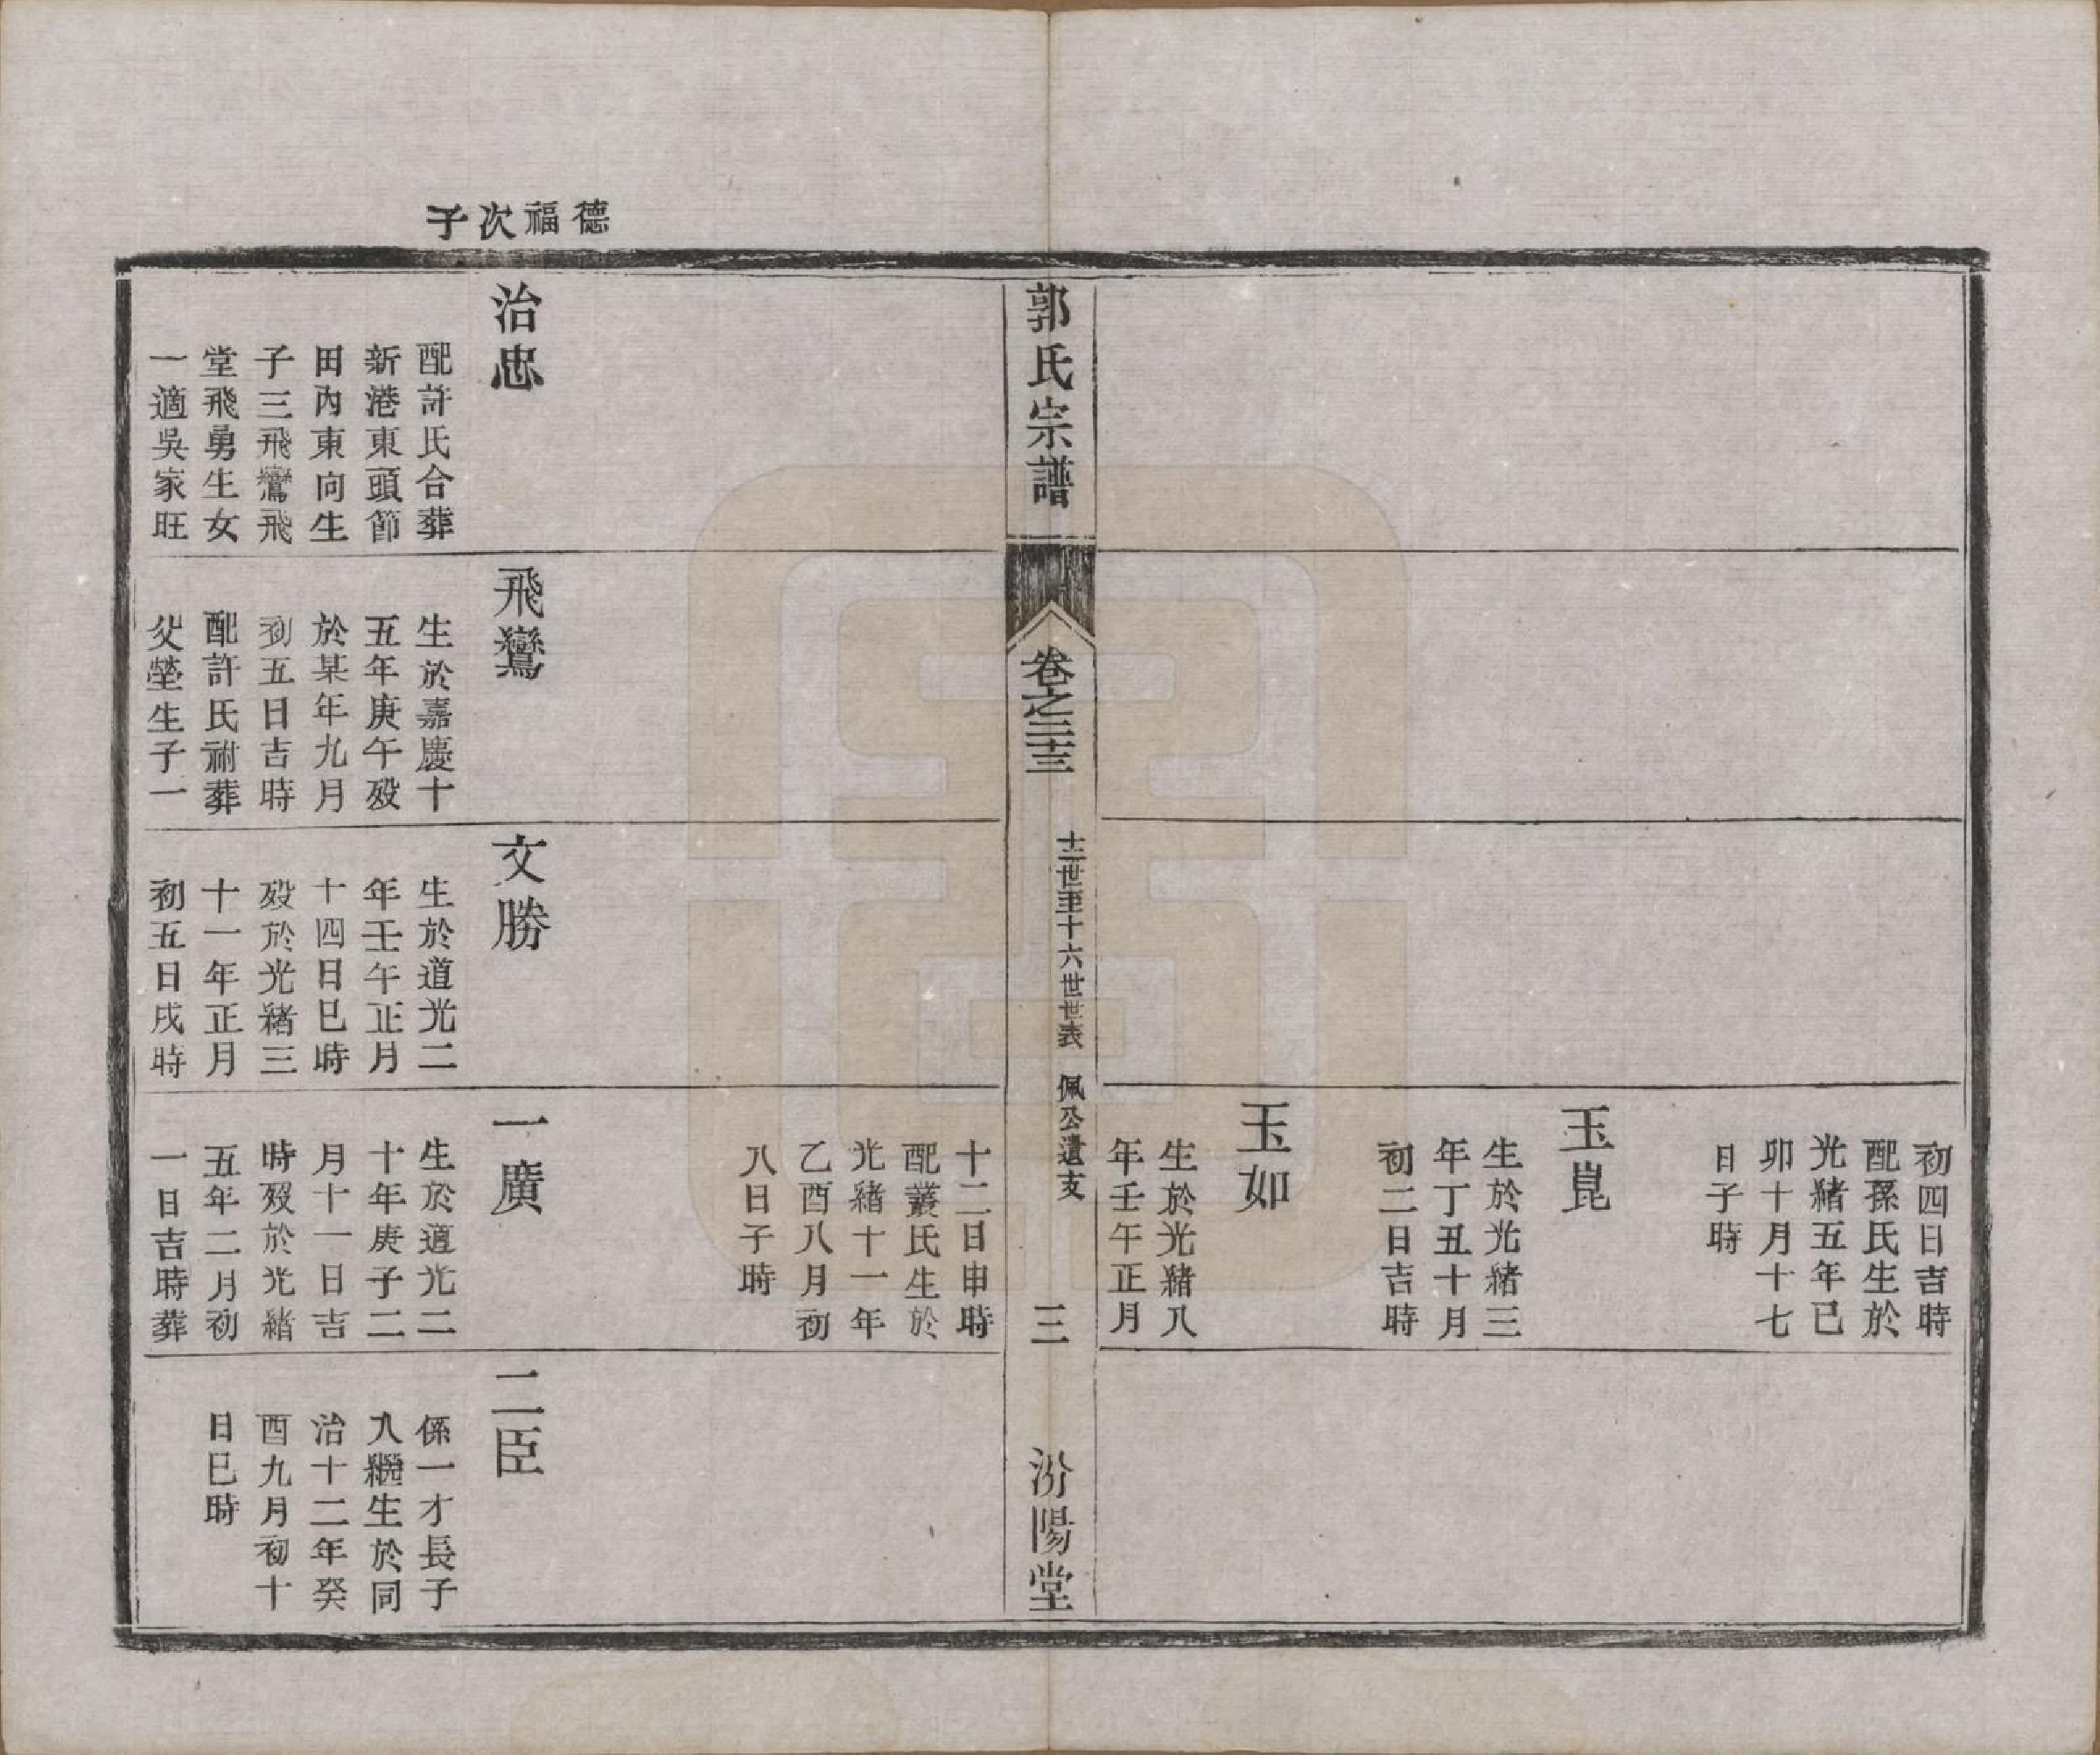 初四日吉時
配孫氏生於
光緒五年已
卯十月十七
日子時
玉崑
生於光緒三
年丁丑十月
初二日吉時
玉如
生於光緒八
年壬午正月
郭氏宗譜
卷之二十三
十二世至十六世世表 佩公遺支
三
汾陽堂
十二日申時
配叢氏生於
光緒十一年
乙酉八月初
八日子時
德福次子
治忠
配許氏合葬
新港東頭節
田內東向生
子三飛鸞飛
堂飛勇生女
一適吳家旺
飛鸞
生於嘉慶十
五年庚午歿
於某年九月
初五日吉時
配許氏祔葬
父塋生子一
文勝
生於道光二
年壬午正月
十四日巳時
歿於光緒三
十一年正月
初五日戌時
一廣
生於道光二
十年庚子二
月十一日吉
時歿於光緒
五年二月初
一日吉時葬
二臣
係一才長子
入繼生於同
治十二年癸
酉九月初十
日巳時